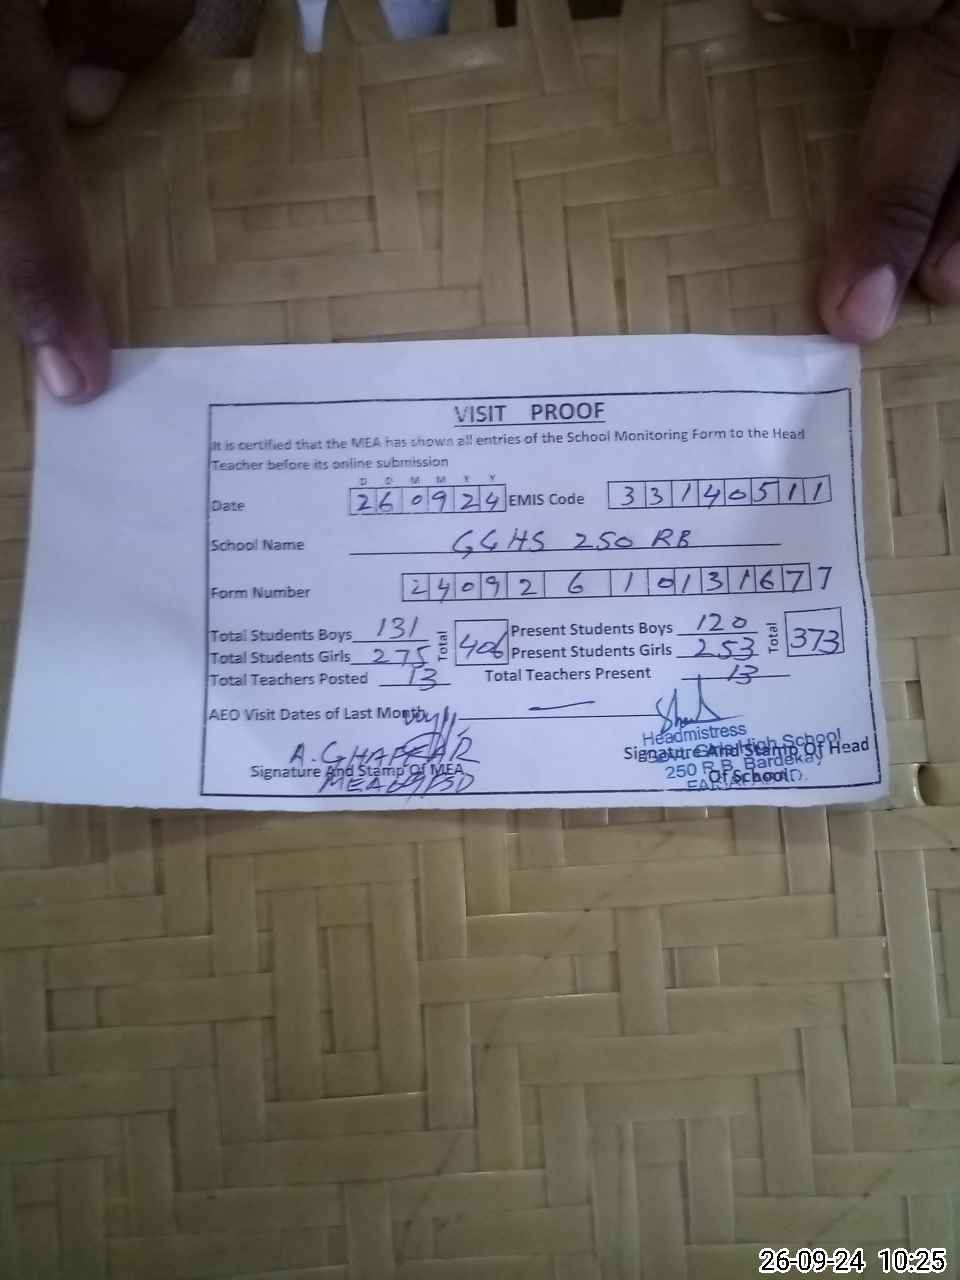 VISIT PROOF
It is certified that the MEA has shown all entries of the School Monitoring Form to the Head
Teacher before its online submission
D D M M Y Y
Date 260924 EMIS Code 33140511
School Name GGHS 250 RB
Form Number 2409261013167 7
Total Students Boys 131 Total 406 Present Students Boys 120 Total 373
Total Students Girls 275 Present Students Girls 253
Total Teachers Posted 13 Total Teachers Present 13
AEO Visit Dates of Last Month —
A.GHAFFAR
Signature And Stamp Of MEA
MEA
Headmistress
High School
Signature And Stamp Of Head
250 R.B. Bardekay
Of School
26-09-24 10:25